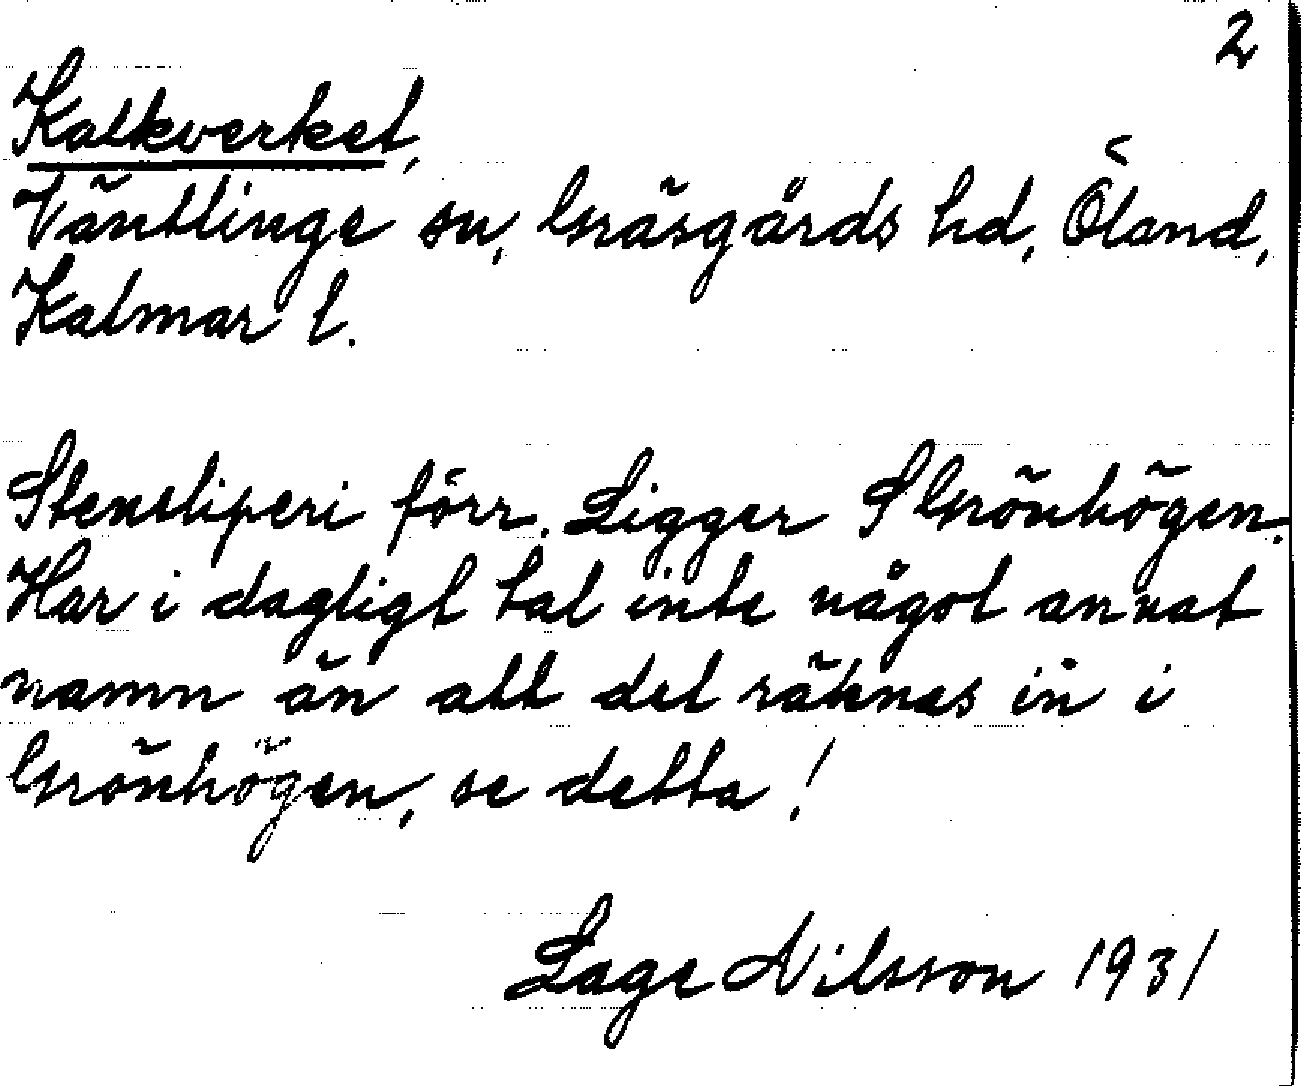 2
Kalkverket,
Väntlinge sn, Gräsgårds hd, Öland,
Kalmar l.
Stensliperi förr. Ligger S Grönhögen.
Har i dagligt tal inte något annat
namn än att det räknas in i
Grönhögen, se detta!
Lage Nilsson 1931